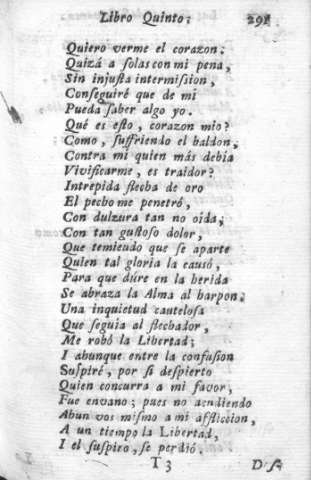 Libro Quinto: 291
Quiero verme el corazon:
Quizá a ſolas con mi pena,
Sin injuſta intermiſsion,
Conſeguiré que de mi
Pueda ſaber algo yo.
Qué es eſto, corazon mio?
Como, ſuffriendo el baldon,
Contra mi quien más debia
Vivificarme, es traidor?
Intrepida flecha de oro
El pecho me penetró,
Con dulzura tan no oida,
Con tan guſtoſo dolor,
Que temiendo que ſe aparte
Quien tal gloria la causó,
Para que dúre en la herida
Se abraza la Alma al harpon.
Una inquietud cautelosa
Que seguia al flechador,
Me robó la Libertad;
I ahunque entre la confuſion
Suſpiré, por ſi deſpierto
Quien concurra a mi favor,
Fue envano; pues no acudiendo
Ahun vos miſmo a mi afflicion,
A un tiempo la Libertad,
I el ſuſpiro, ſe perdió.
T 3 Deſ-